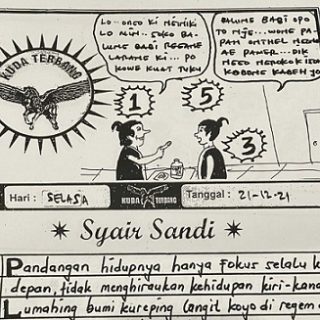 KUDA TERBANG
LO...ONGO KI MENIKI
LO ALIH...SOKO BA-
LUNG BABI REGANE
LARANG KI...PO
KOWE KUAT TUKU
BALUNG BABI OPO
TO NJE...WONG PA-
PAH ONTHEL
AE PAMER...DIK
KOBONG KABEH JO
1
5
3
Hari : SELASA
KUDA TERBANG
Tanggal : 21-12-21
Syair Sandi
Pandangan hidupnya hanya fokus selalu k
depan, tidak menghiraukan kehidupan kiri-kana
Lumahing bumi kureping langit koyo di regem